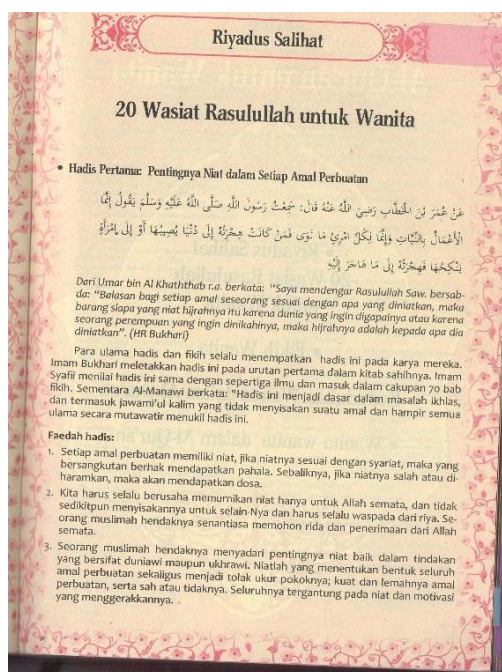 Riyadus Salihat
20 Wasiat Rasulullah untuk Wanita
• Hadis Pertama: Pentingnya Niat dalam Setiap Amal Perbuatan
عَنْ عُمَرَ بْنَ الْخَطَّابِ رَضِيَ اللَّهُ عَنْهُ قَالَ: سَمِعْتُ رَسُولَ اللَّهِ صَلَّى اللَّهُ عَلَيْهِ وَسَلَّمَ يَقُولُ إِنَّمَا
الْأَعْمَالُ بِالنِّيَّاتِ وَإِنَّمَا لِكُلِّ امْرِئٍ مَا نَوَى فَمَنْ كَانَتْ هِجْرَتُهُ إِلَى دُنْيَا يُصِيبُهَا أَوْ إِلَى امْرَأَةٍ
يَنْكِحُهَا فَهِجْرَتُهُ إِلَى مَا هَاجَرَ إِلَيْهِ
Dari Umar bin Al Khaththab r.a. berkata: "Saya mendengar Rasulullah Saw. bersab-
da: "Balasan bagi setiap amal seseorang sesuai dengan apa yang diniatkan, maka
barang siapa yang niat hijrahnya itu karena dunia yang ingin digapainya atau karena
seorang perempuan yang ingin dinikahinya, maka hijrahnya adalah kepada apa dia
diniatkan". (HR Bukhari)
Para ulama hadis dan fikih selalu menempatkan hadis ini pada karya mereka.
Imam Bukhari meletakkan hadis ini pada urutan pertama dalam kitab sahihnya. Imam
Syafii menilai hadis ini sama dengan sepertiga ilmu dan masuk dalam cakupan 70 bab
fikih. Sementara Al-Manawi berkata: "Hadis ini menjadi dasar dalam masalah ikhlas,
dan termasuk jawami'ul kalim yang tidak menyisakan suatu amal dan hampir semua
ulama secara mutawatir menukil hadis ini.
Faedah hadis:
1. Setiap amal perbuatan memiliki niat, jika niatnya sesuai dengan syariat, maka yang
bersangkutan berhak mendapatkan pahala. Sebaliknya, jika niatnya salah atau di-
haramkan, maka akan mendapatkan dosa.
2. Kita harus selalu berusaha memurnikan niat hanya untuk Allah semata, dan tidak
sedikitpun menyisakannya untuk selain-Nya dan harus selalu waspada dari riya. Se-
orang muslimah hendaknya senantiasa memohon rida dan penerimaan dari Allah
semata.
3. Seorang muslimah hendaknya menyadari pentingnya niat baik dalam tindakan
yang bersifat duniawi maupun ukhrawi. Niatlah yang menentukan bentuk seluruh
amal perbuatan sekaligus menjadi tolak ukur pokoknya; kuat dan lemahnya amal
perbuatan, serta sah atau tidaknya. Seluruhnya tergantung pada niat dan motivasi
yang menggerakkannya.